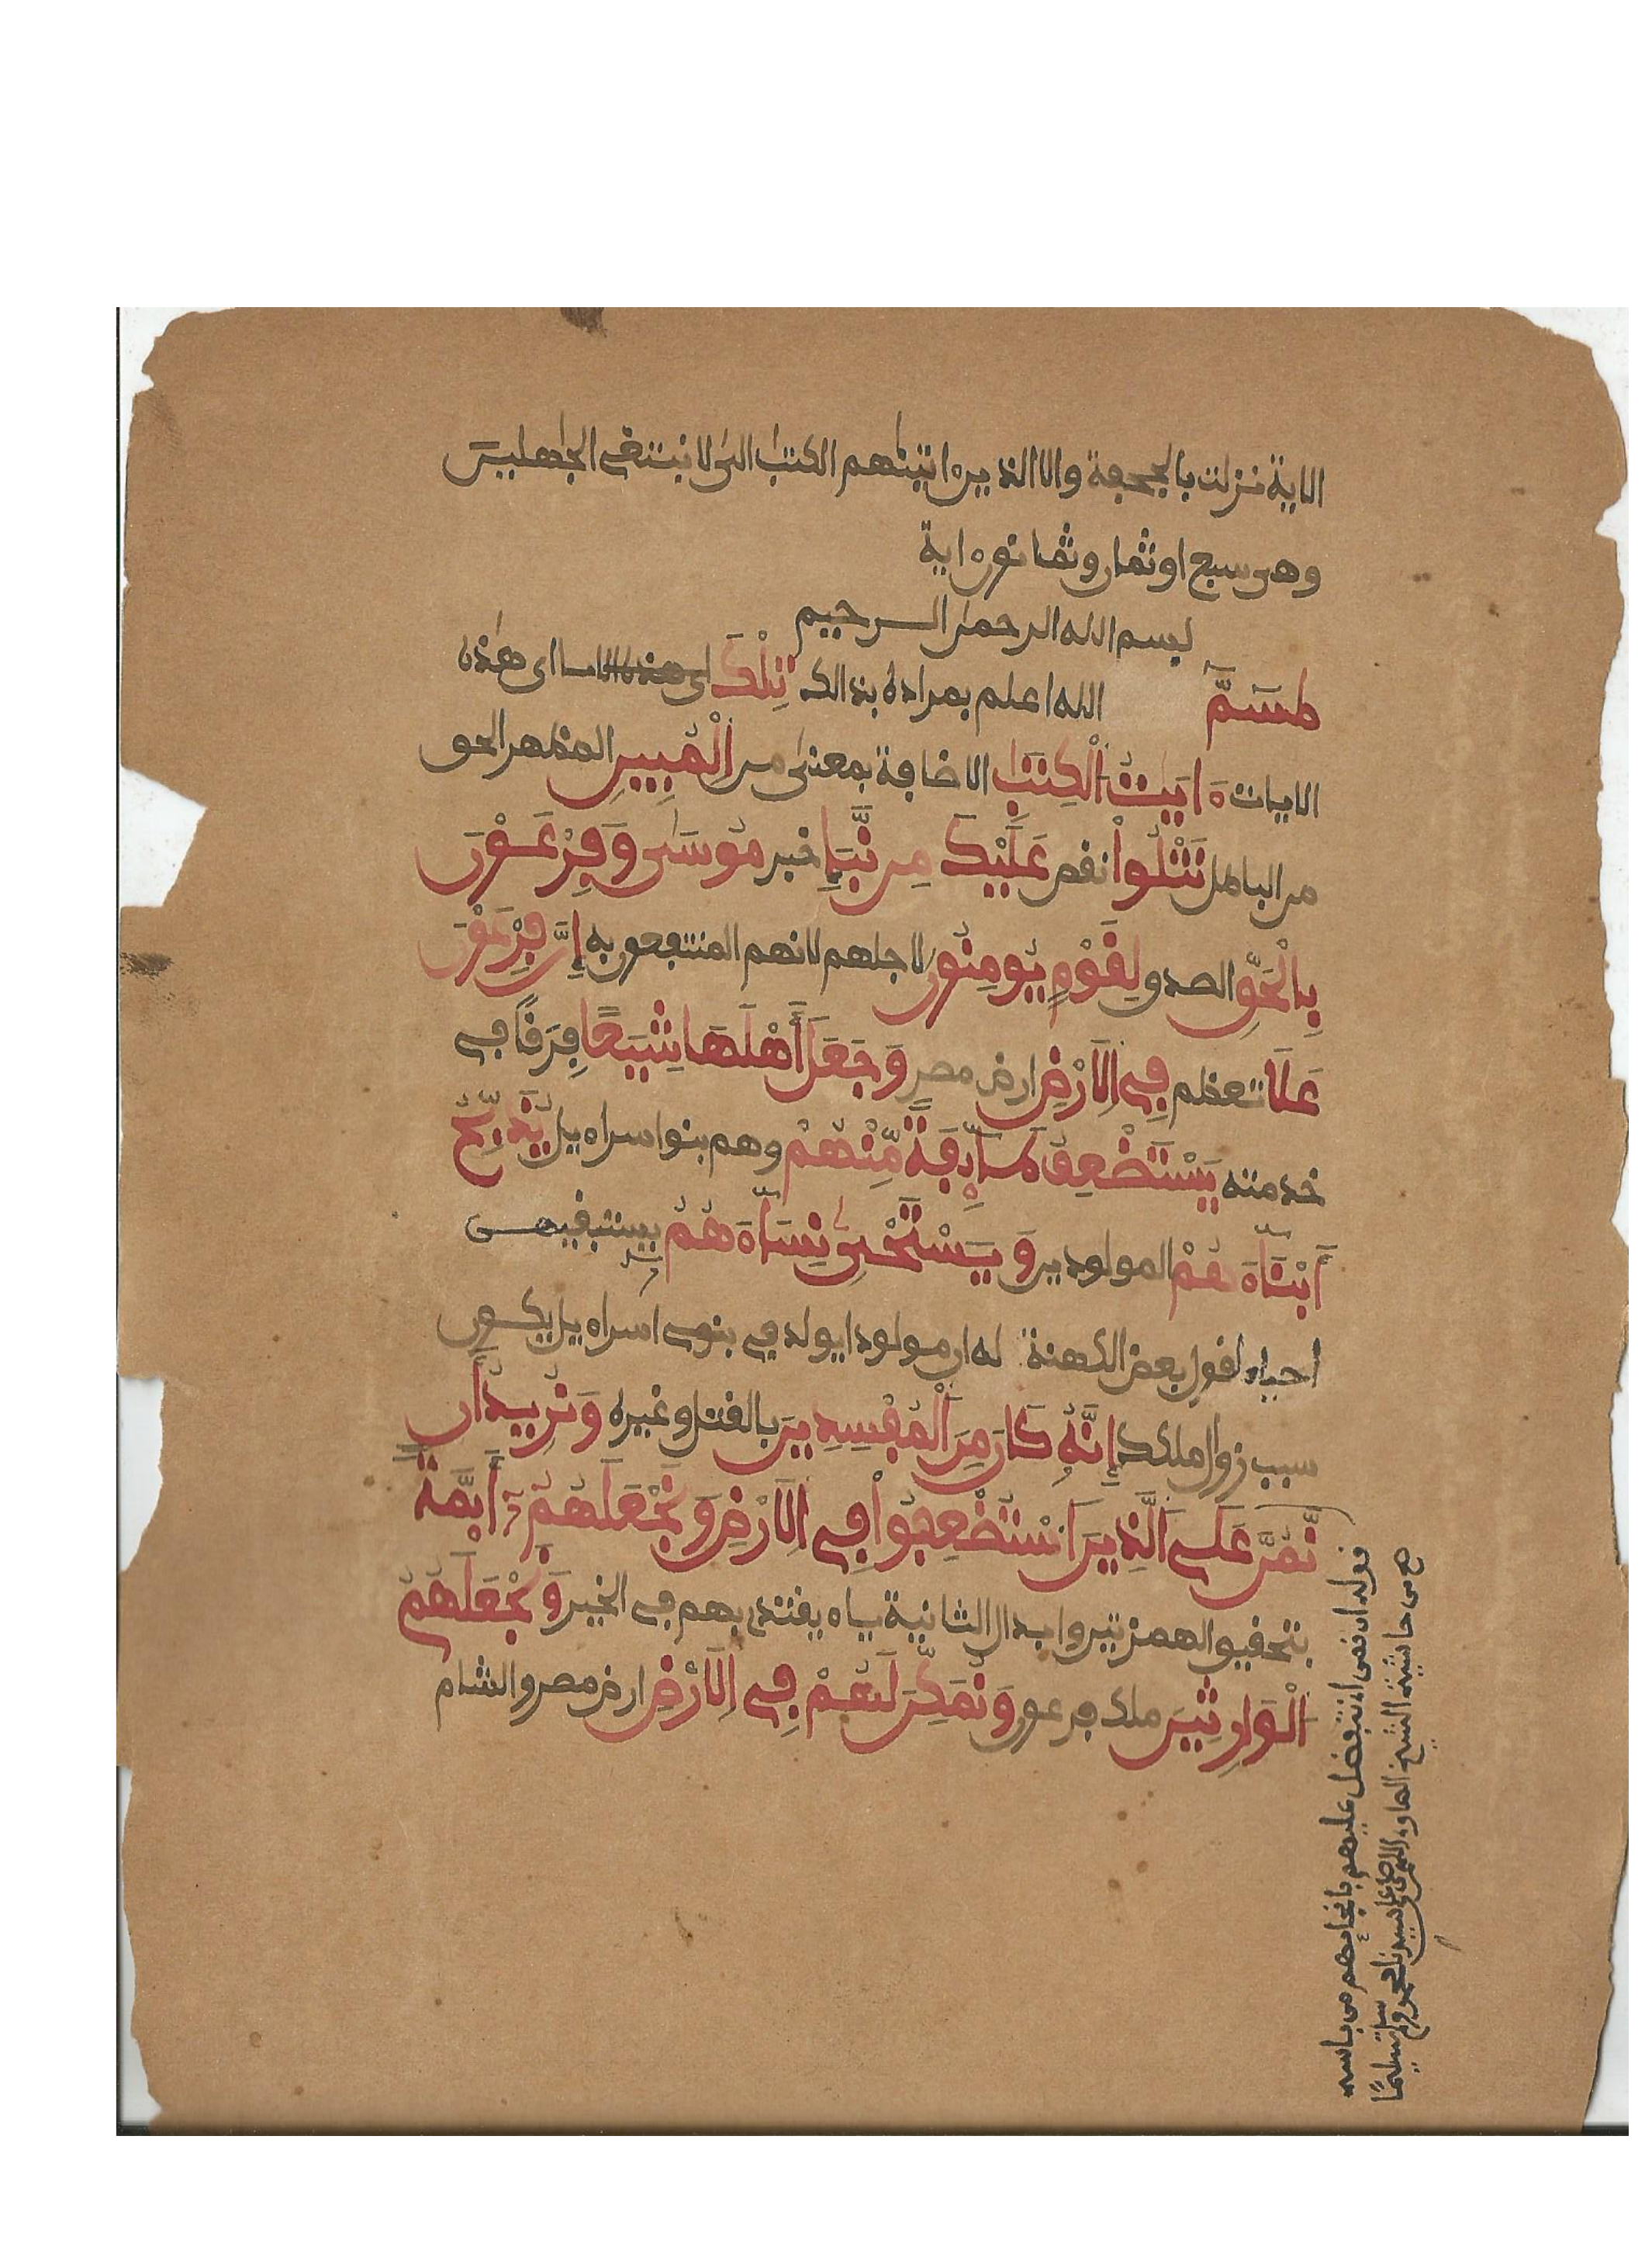 الاية نزلت بالجحفة والا الذين ءاتينهم الكتب الى لا نبتغى الجهلين
وهى سبع او ثمان وثمانون ءاية
بسم الله الرحمن الرحيم
طسم الله اعلم بمراده بذالك تلك اى هذه
الايات ءايت الكتب الاضافة بمعنى من المبين المظهر الحق
من الباطل نتلوا نقص عليك من نبإ خبر موسى وفرعون
بالحق الصدق لقوم يومنون لاجلهم لانهم المنتفعون به إن فرعون
علا تعظم في الارض ارض مصر وجعل أهلها شيعا فرقا في
خدمته يستضعف طآئفة منهم وهم بنوا اسراءيل يذبح
أبنآءهم المولودين ويستحى نسآءهم يستبقيهن
احياء لقول بعض الكهنة له ان مولودا يولد في بنى اسراءيل يكون
سبب زوال ملكك إنه كان من المفسدين بالقتل وغيره ونريد أن
نمن على الذين استضعفوا في الارض ونجعلهم أيمة
بتحقيق الهمزتين وابدال الثانية ياء يقتدى بهم في الخير ونجعلهم
الوارثين ملك فرعون ونمكن لهم في الارض ارض مصر والشام
قوله ان نمن اى نتفضل عليهم بانجايهم من باسه
هع من حاشية الشيخ الصاوى